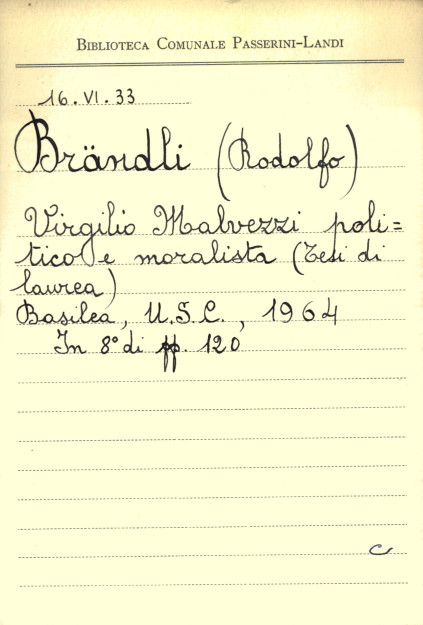 BIBLIOTECA COMUNALE PASSERINI-LANDI
16.VI.33
Brändli (Rodolfo)
Virgilio Malvezzi poli=
tico e moralista (Tesi di
laurea)
Basilea, U.S.C., 1964
In 8° di pp. 120
C